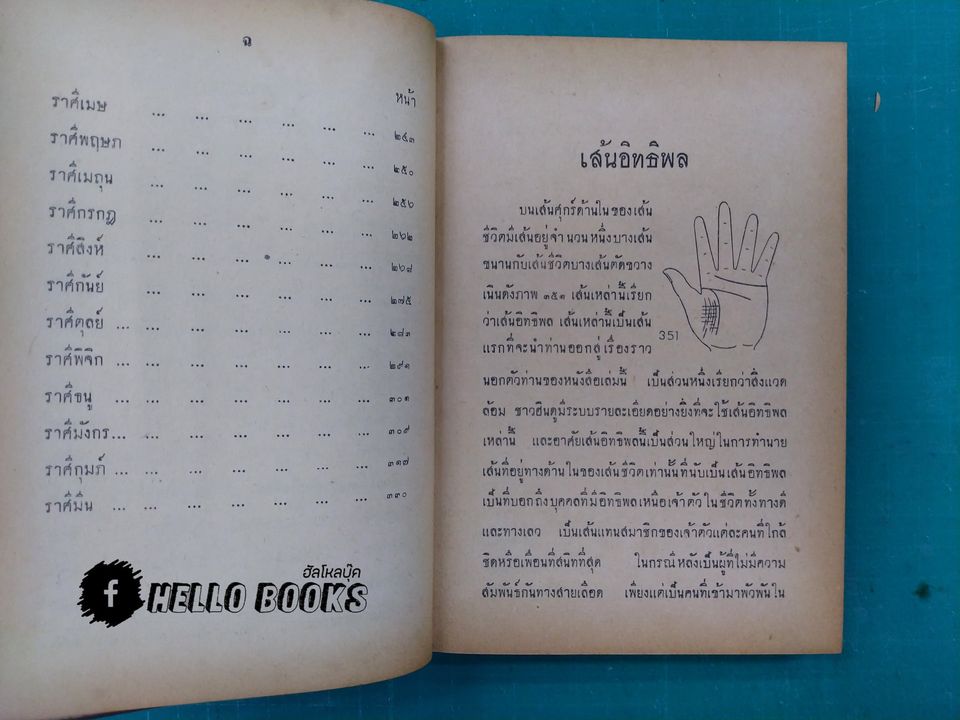 ฉ
หน้า
ราศีเมษ ... ... ... ... ... ... ๒๔๓
ราศีพฤษภ ... ... ... ... ... ... ๒๕๐
ราศีเมถุน ... ... ... ... ... ... ๒๕๖
ราศีกรกฎ ... ... ... ... ... ... ๒๖๒
ราศีสิงห์ ... ... ... ... ... ๒๖๘
ราศีกันย์ ... ... ... ... ... ... ๒๗๕
ราศีตุลย์ ... ... ... ... ... ... ... ๒๘๓
ราศีพิจิก ... ... ... ... ... ... ... ๒๙๑
ราศีธนู ... ... ... ... ... ... ๓๐๑
ราศีมังกร... ... ... ... ... ... ๓๐๙
ราศีกุมภ์ ... ... ... ... ... ... ๓๑๗
ราศีมีน ... ... ... ... ... ... ๓๓๐
ฮัลโหลบุ๊ค
f HELLO BOOKS
เส้นอิทธิพล
บนเส้นศุกร์ด้านในของเส้น
ชีวิตมีเส้นอยู่จำนวนหนึ่งบางเส้น
ขนานกับเส้นชีวิตบางเส้นตัดขวาง
เนินดังภาพ ๓๕๑ เส้นเหล่านี้เรียก
ว่าเส้นอิทธิพล เส้นเหล่านี้เป็นเส้น
351
แรกที่จะนำท่านออกสู่เรื่องราว
นอกตัวท่านของหนังสือเล่มนี้ เป็นส่วนหนึ่งเรียกว่าสิ่งแวด
ล้อม ชาวฮินดูมีระบบรายละเอียดอย่างยิ่งที่จะใช้เส้นอิทธิพล
เหล่านี้ และอาศัยเส้นอิทธิพลนี้เป็นส่วนใหญ่ในการทำนาย
เส้นที่อยู่ทางด้านในของเส้นชีวิตเท่านั้นที่นับเป็นเส้นอิทธิพล
เป็นที่บอกถึงบุคคลที่มีอิทธิพลเหนือเจ้าตัวในชีวิตทั้งทางดี
และทางเลว เป็นเส้นแทนสมาชิกของเจ้าตัวแต่ละคนที่ใกล้
ชิดหรือเพื่อนที่สนิทที่สุด ในกรณีหลังเป็นผู้ที่ไม่มีความ
สัมพันธ์กันทางสายเลือด เพียงแต่เป็นคนที่เข้ามาพัวพันใน